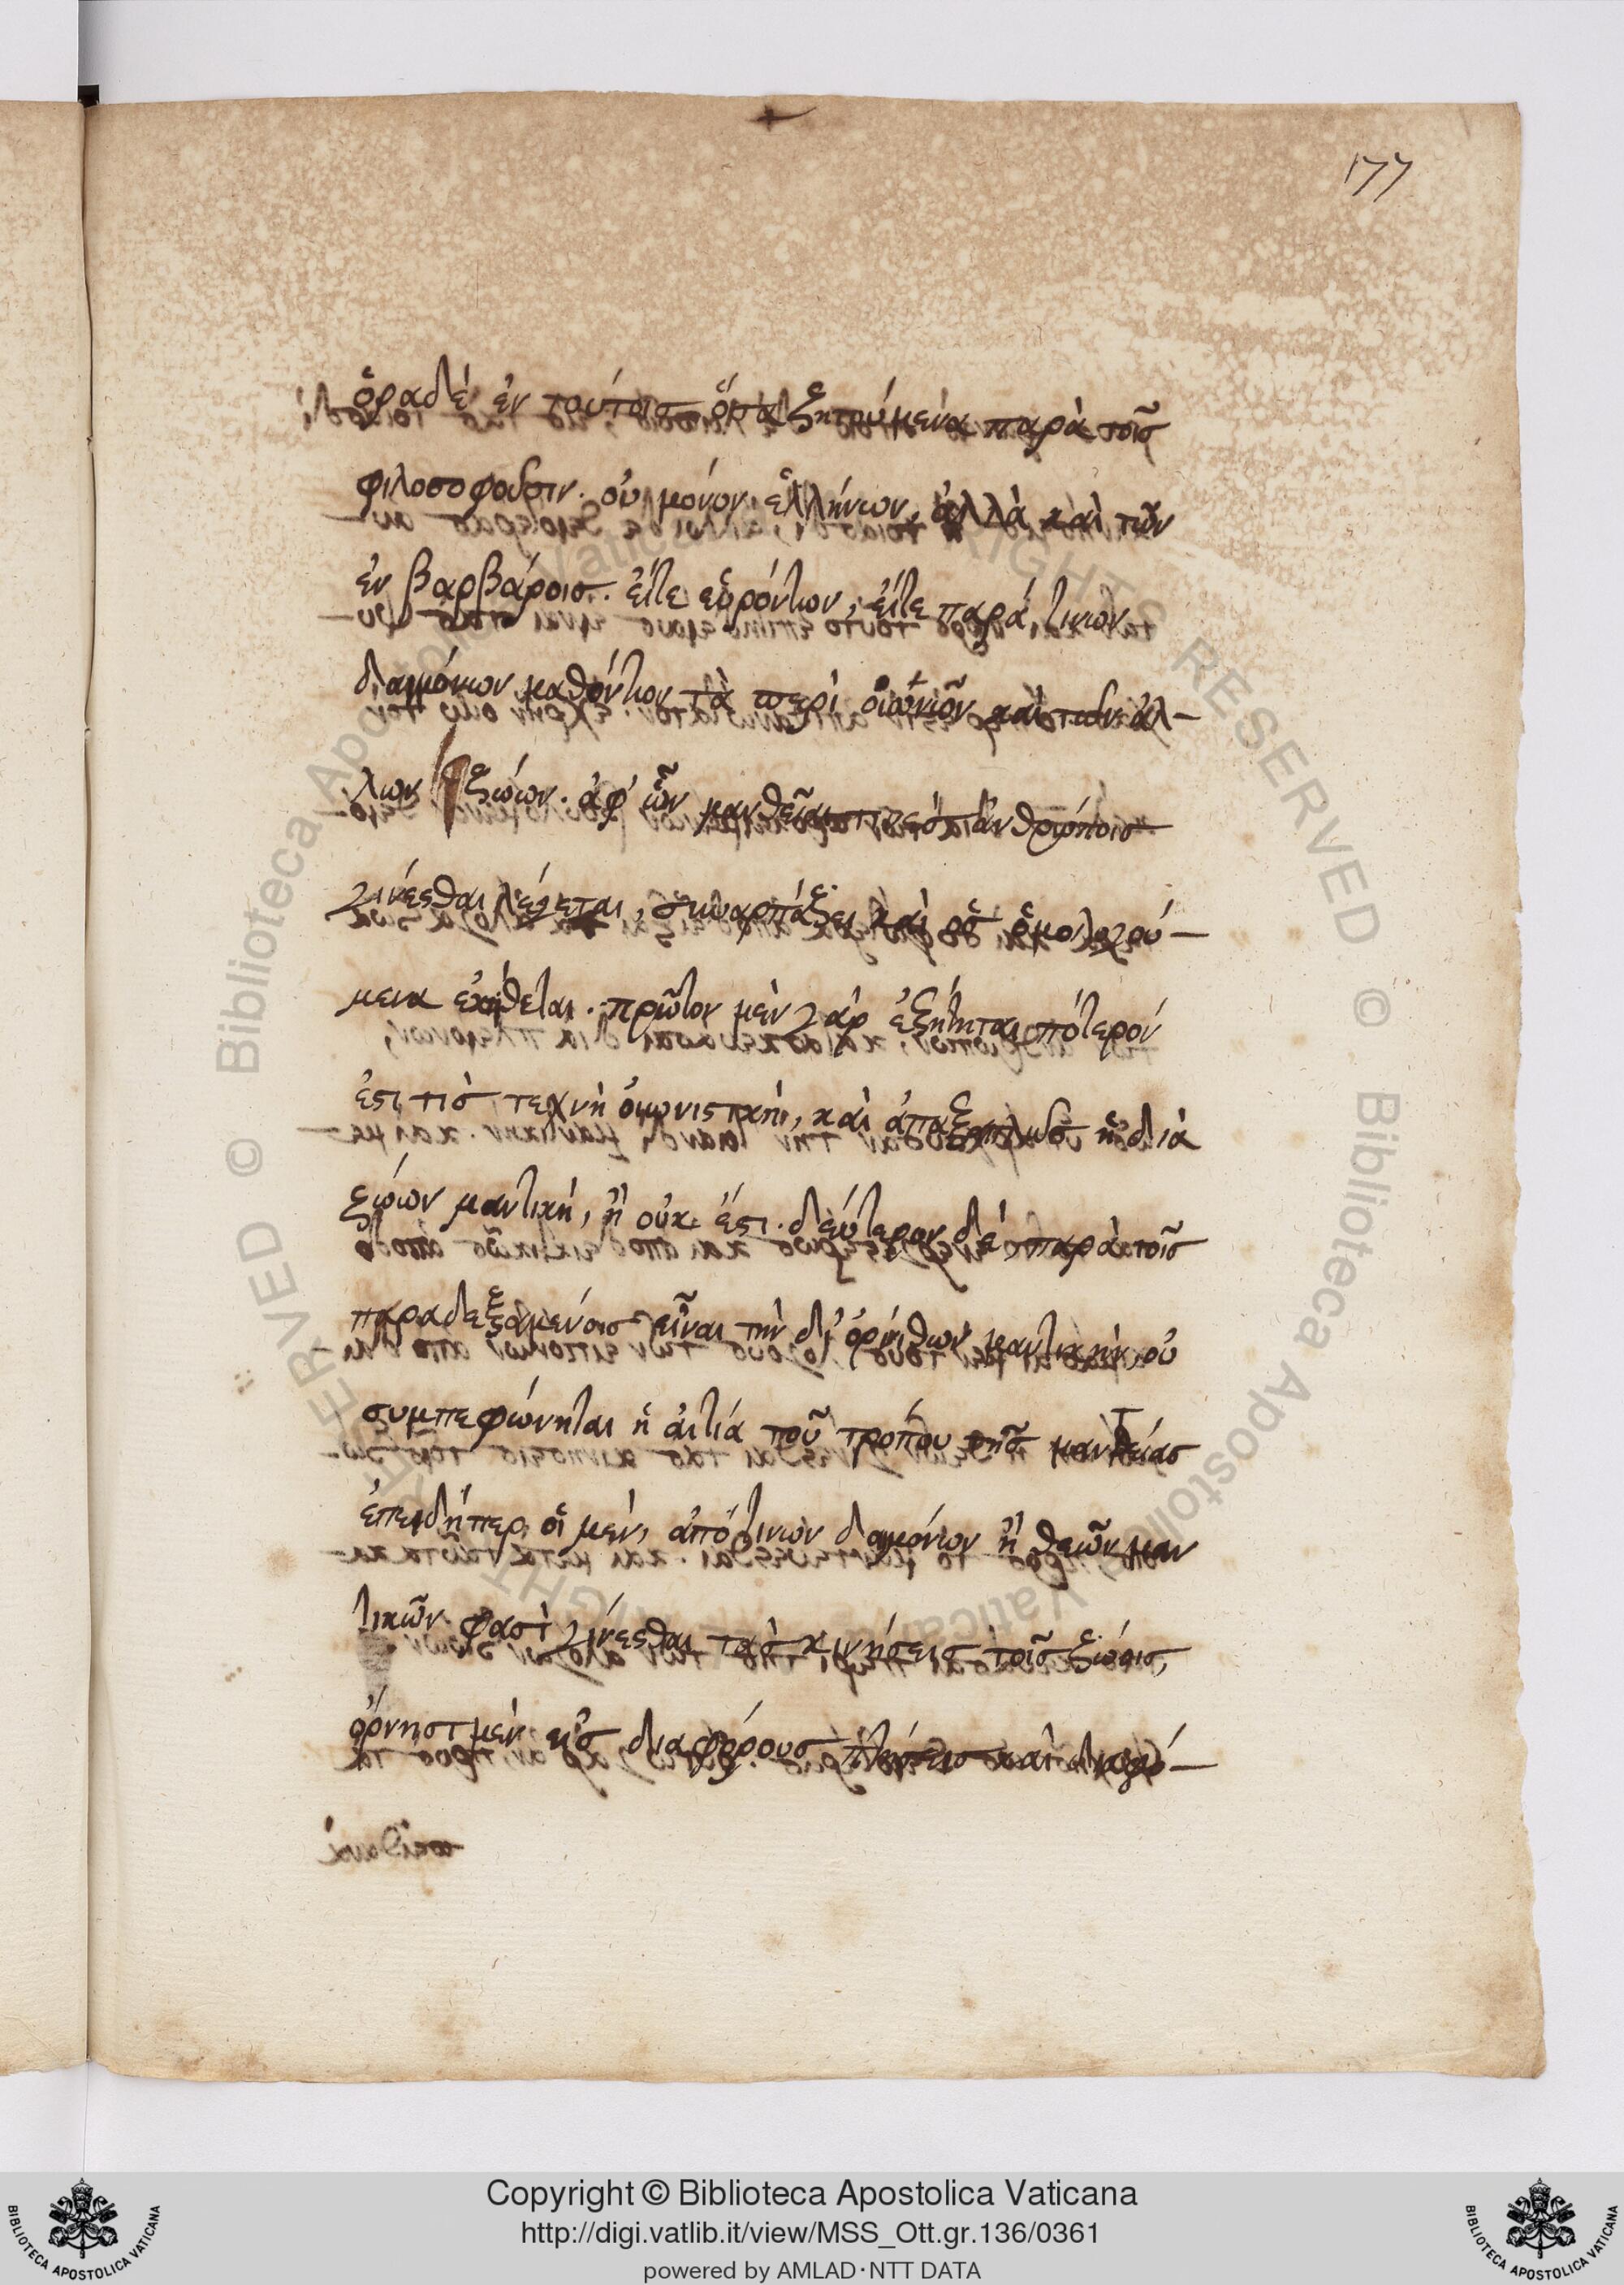 177
ὅρα δὲ ἐν τούτοις ὅτι τὰ ζητούμενα παρὰ τοῖς
φιλοσοφοῦσιν. οὐ μόνον ἑλλήνων, ἀλλὰ καὶ τῶν
ἐν βαρβάροις. εἴτε εὑρόντων, εἴτε παρά τινων
δαιμόνων μαθόντων τὰ περὶ οἰωνῶν καὶ τῶν ἀλ-
λων ζώων. ἀφ' ὧν μαντεῖαι τινες ἀνθρώποις
γίνεσθαι λέγεται, συναρπάζει καὶ ὡς ὁμολογού-
μενα ἐκτίθεται. πρῶτον μὲν γὰρ ἐζήτηται πότερόν
ἐστι τὶς τεχνὴ οἰωνιστικὴ, καὶ ἁπαξαπλῶς ἡ διὰ
ζώων μαντικὴ, ἢ οὐκ ἔστι. δεύτερον δὲ παρὰ τοῖς
παραδεξαμένοις εἶναι τὴν δι' ὀρνίθων μαντικήν, οὐ
συμπεφώνηται ἡ αἰτία τοῦ τρόπου τῆς μαντείας
ἐπειδήπερ οἱ μὲν, ἀπό τινων δαιμόνων ἢ θεῶν μαν
τικῶν φασὶ γίνεσθαι τὰς κινήσεις τοῖς ζώοις,
ὄρνησι μὲν εἰς διαφόρους πτήσεις καὶ
Copyright © Biblioteca Apostolica Vaticana
http://digi.vatlib.it/view/MSS_Ott.gr.136/0361
powered by AMLAD·NTT DATA